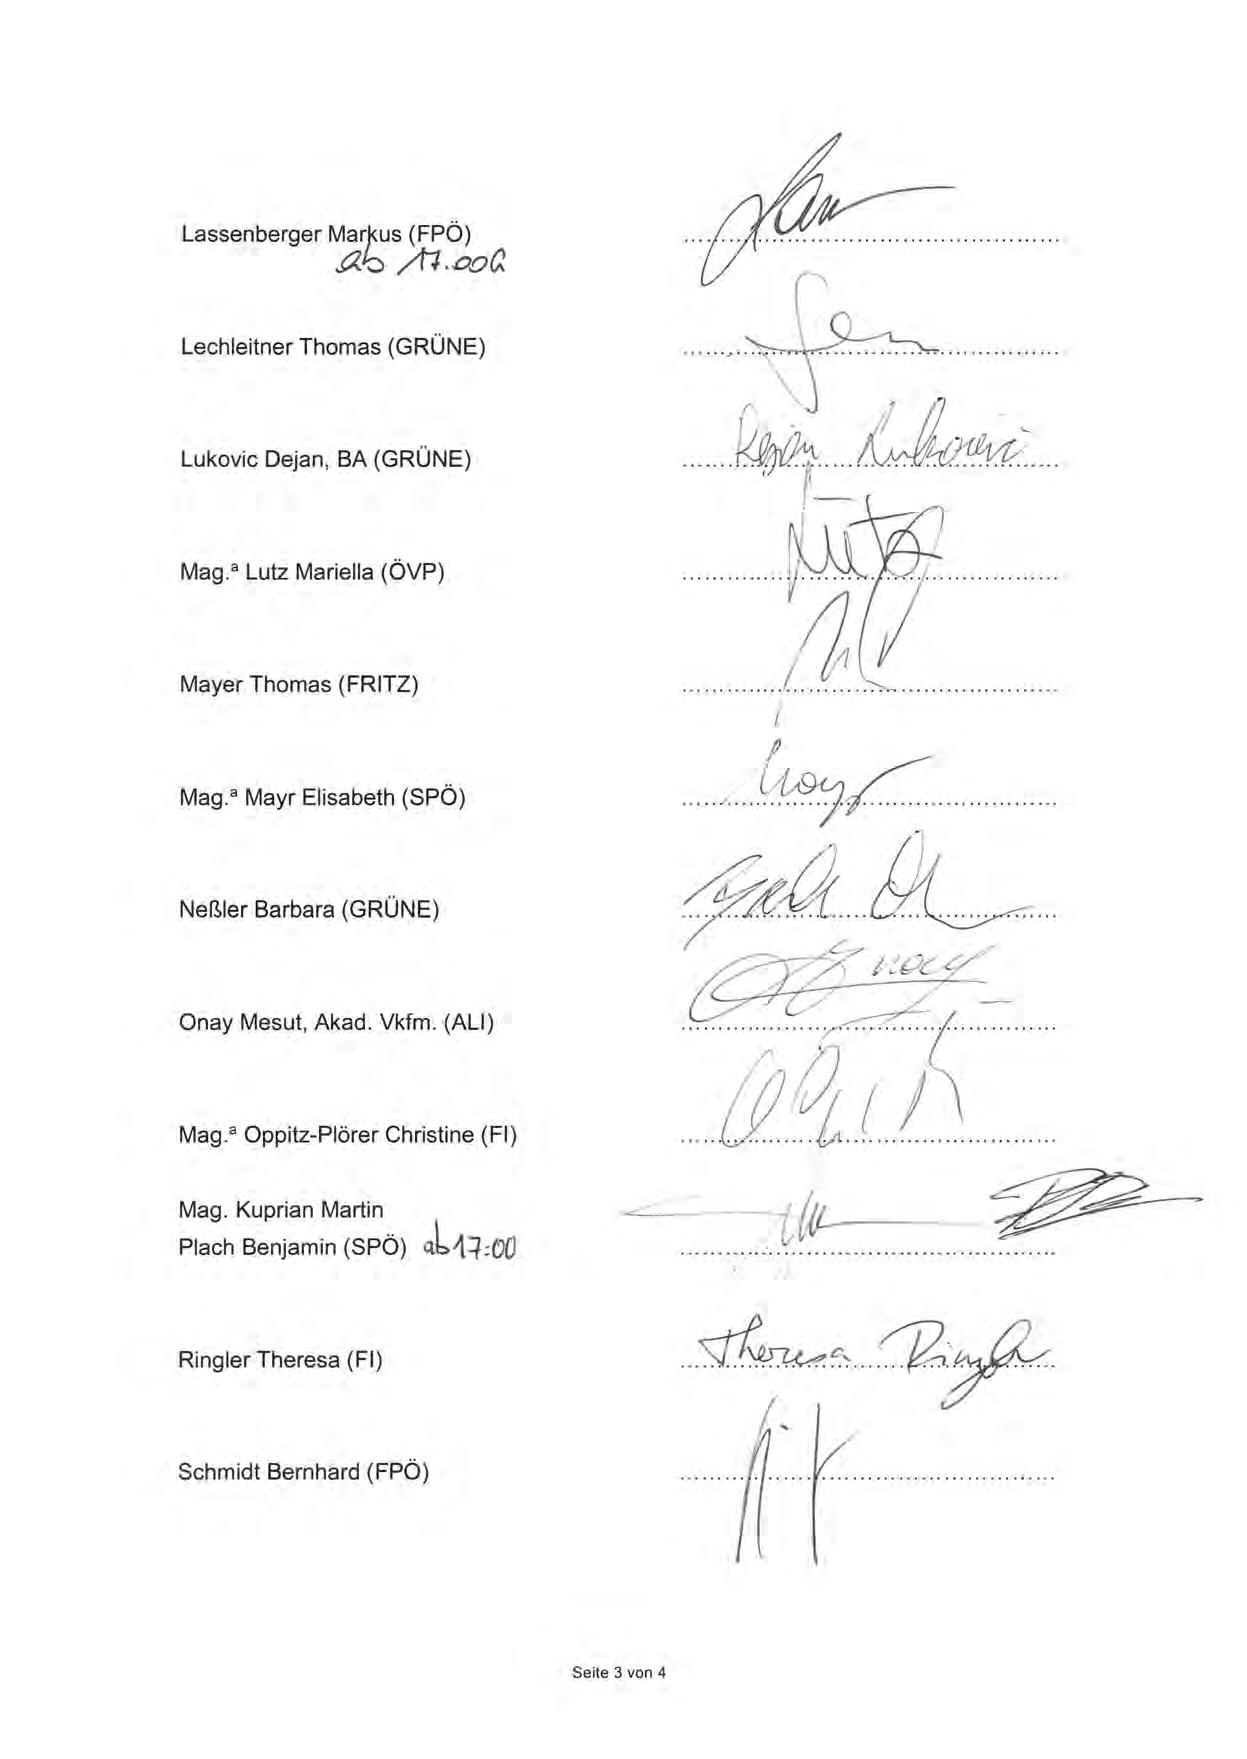 Lassenberger Markus (FPÖ)
ab 17.00h
Lechleitner Thomas (GRÜNE)
Lukovic Dejan, BA (GRÜNE) Dejan Lukovic
Mag.ª Lutz Mariella (ÖVP) Lutz
Mayer Thomas (FRITZ)
Mag.ª Mayr Elisabeth (SPÖ) Mayr
Neßler Barbara (GRÜNE)
Onay Mesut, Akad. Vkfm. (ALI)
Mag.ª Oppitz-Plörer Christine (FI)
Mag. Kuprian Martin
Plach Benjamin (SPÖ) ab 17:00
Ringler Theresa (FI) Theresa Ringler
Schmidt Bernhard (FPÖ)
Seite 3 von 4